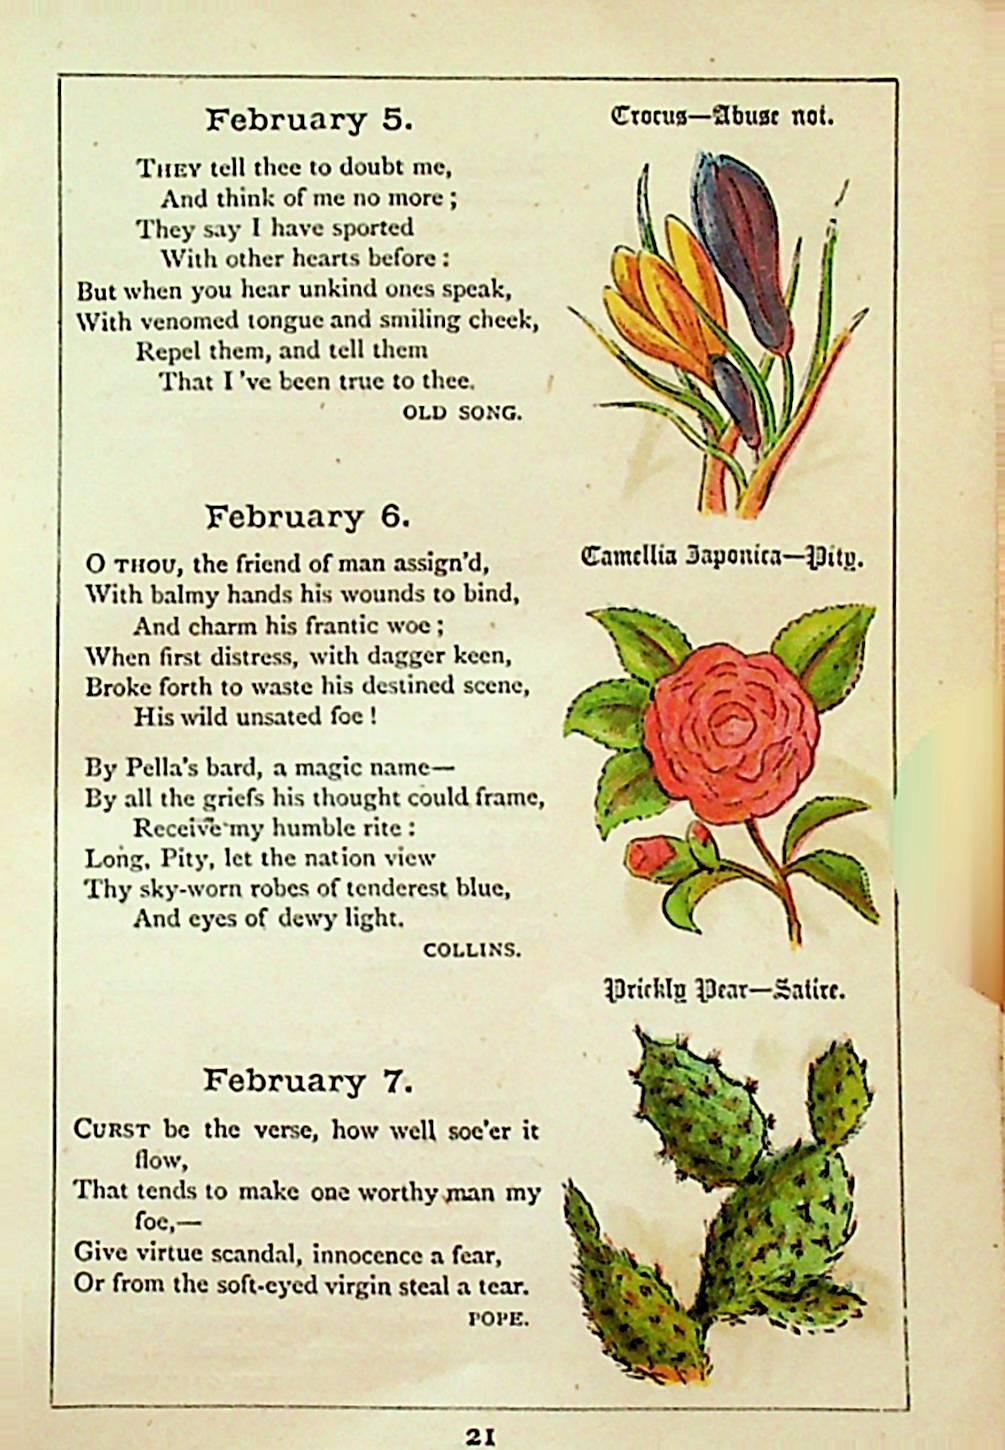 February 5.
THEY tell thee to doubt me,
And think of me no more;
They say I have sported
With other hearts before:
But when you hear unkind ones speak,
With venomed tongue and smiling cheek,
Repel them, and tell them
That I've been true to thee.
OLD SONG.
Crocus—Abuse not.
February 6.
O THOU, the friend of man assign'd,
With balmy hands his wounds to bind,
And charm his frantic woe;
When first distress, with dagger keen,
Broke forth to waste his destined scene,
His wild unsated foe!
By Pella's bard, a magic name—
By all the griefs his thought could frame,
Receive my humble rite:
Long, Pity, let the nation view
Thy sky-worn robes of tenderest blue,
And eyes of dewy light.
COLLINS.
Camellia Japonica—Pity.
February 7.
CURST be the verse, how well soe'er it
flow,
That tends to make one worthy man my
foe,—
Give virtue scandal, innocence a fear,
Or from the soft-eyed virgin steal a tear.
POPE.
Prickly Pear—Satire.
21